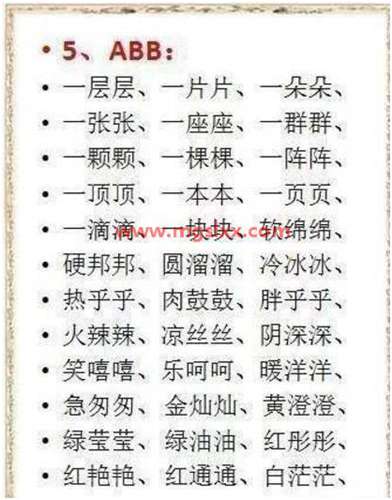 5、ABB：
一层层、一片片、一朵朵、
一张张、一座座、一群群、
一颗颗、一棵棵、一阵阵、
一顶顶、一本本、一页页、
一滴滴、一块块、软绵绵、
www.mgslxx.com
硬邦邦、圆溜溜、冷冰冰、
热乎乎、肉鼓鼓、胖乎乎、
火辣辣、凉丝丝、阴深深、
笑嘻嘻、乐呵呵、暖洋洋、
急匆匆、金灿灿、黄澄澄、
绿莹莹、绿油油、红彤彤、
红艳艳、红通通、白茫茫、